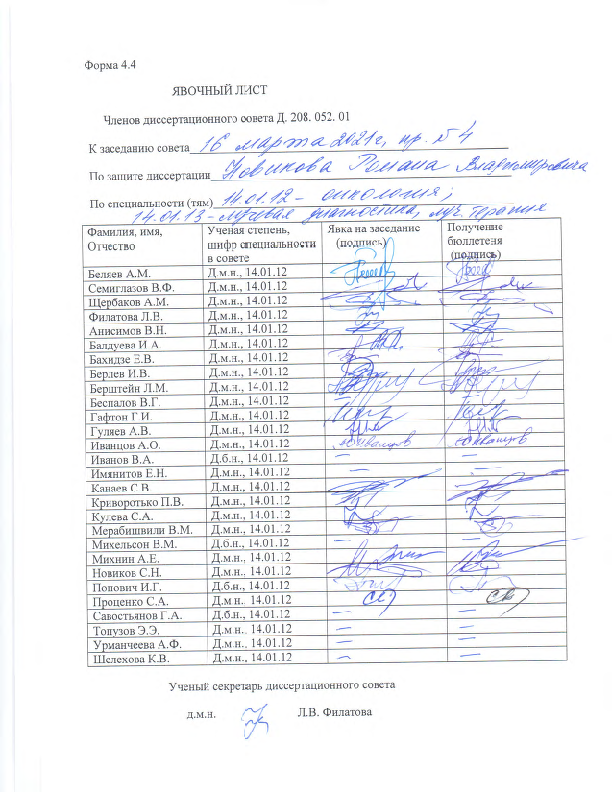 Форма 4.4
ЯВОЧНЫЙ ЛИСТ
Членов диссертационного совета Д. 208. 052. 01
К заседанию совета 16 марта 2021г, пр. №4
По защите диссертации Новикова Романа Владимировича
По специальности (тям) 14.01.12 – онкология;
14.01.13 – лучевая диагностика, луч. терапия
Фамилия, имя, Отчество Ученая степень, шифр специальности в совете Явка на заседание (подпись) Получение бюллетеня (подпись)
Беляев А.М. Д.м.н., 14.01.12
Семиглазов В.Ф. Д.м.н., 14.01.12
Щербаков А.М. Д.м.н., 14.01.12
Филатова Л.В. Д.м.н., 14.01.12
Анисимов В.Н. Д.м.н., 14.01.12
Балдуева И.А. Д.м.н., 14.01.12
Бахидзе Е.В. Д.м.н., 14.01.12
Берлев И.В. Д.м.н., 14.01.12
Берштейн Л.М. Д.м.н., 14.01.12
Беспалов В.Г. Д.м.н., 14.01.12 — —
Гафтон Г.И. Д.м.н., 14.01.12
Гуляев А.В. Д.м.н., 14.01.12
Иванцов А.О. Д.м.н., 14.01.12 Иванцов Иванцов
Иванов В.А. Д.б.н., 14.01.12 — —
Имянитов Е.Н. Д.м.н., 14.01.12 — —
Канаев С.В. Д.м.н., 14.01.12
Криворотько П.В. Д.м.н., 14.01.12
Кулева С.А. Д.м.н., 14.01.12
Мерабишвили В.М. Д.м.н., 14.01.12
Михельсон В.М. Д.б.н., 14.01.12 — —
Михнин А.Е. Д.м.н., 14.01.12
Новиков С.Н. Д.м.н., 14.01.12
Попович И.Г. Д.б.н., 14.01.12
Проценко С.А. Д.м.н., 14.01.12
Савостьянов Г.А. Д.б.н., 14.01.12 — —
Топузов Э.Э. Д.м.н., 14.01.12 — —
Урманчеева А.Ф. Д.м.н., 14.01.12 — —
Шелехова К.В. Д.м.н., 14.01.12 — —
Ученый секретарь диссертационного совета
д.м.н. Л.В. Филатова